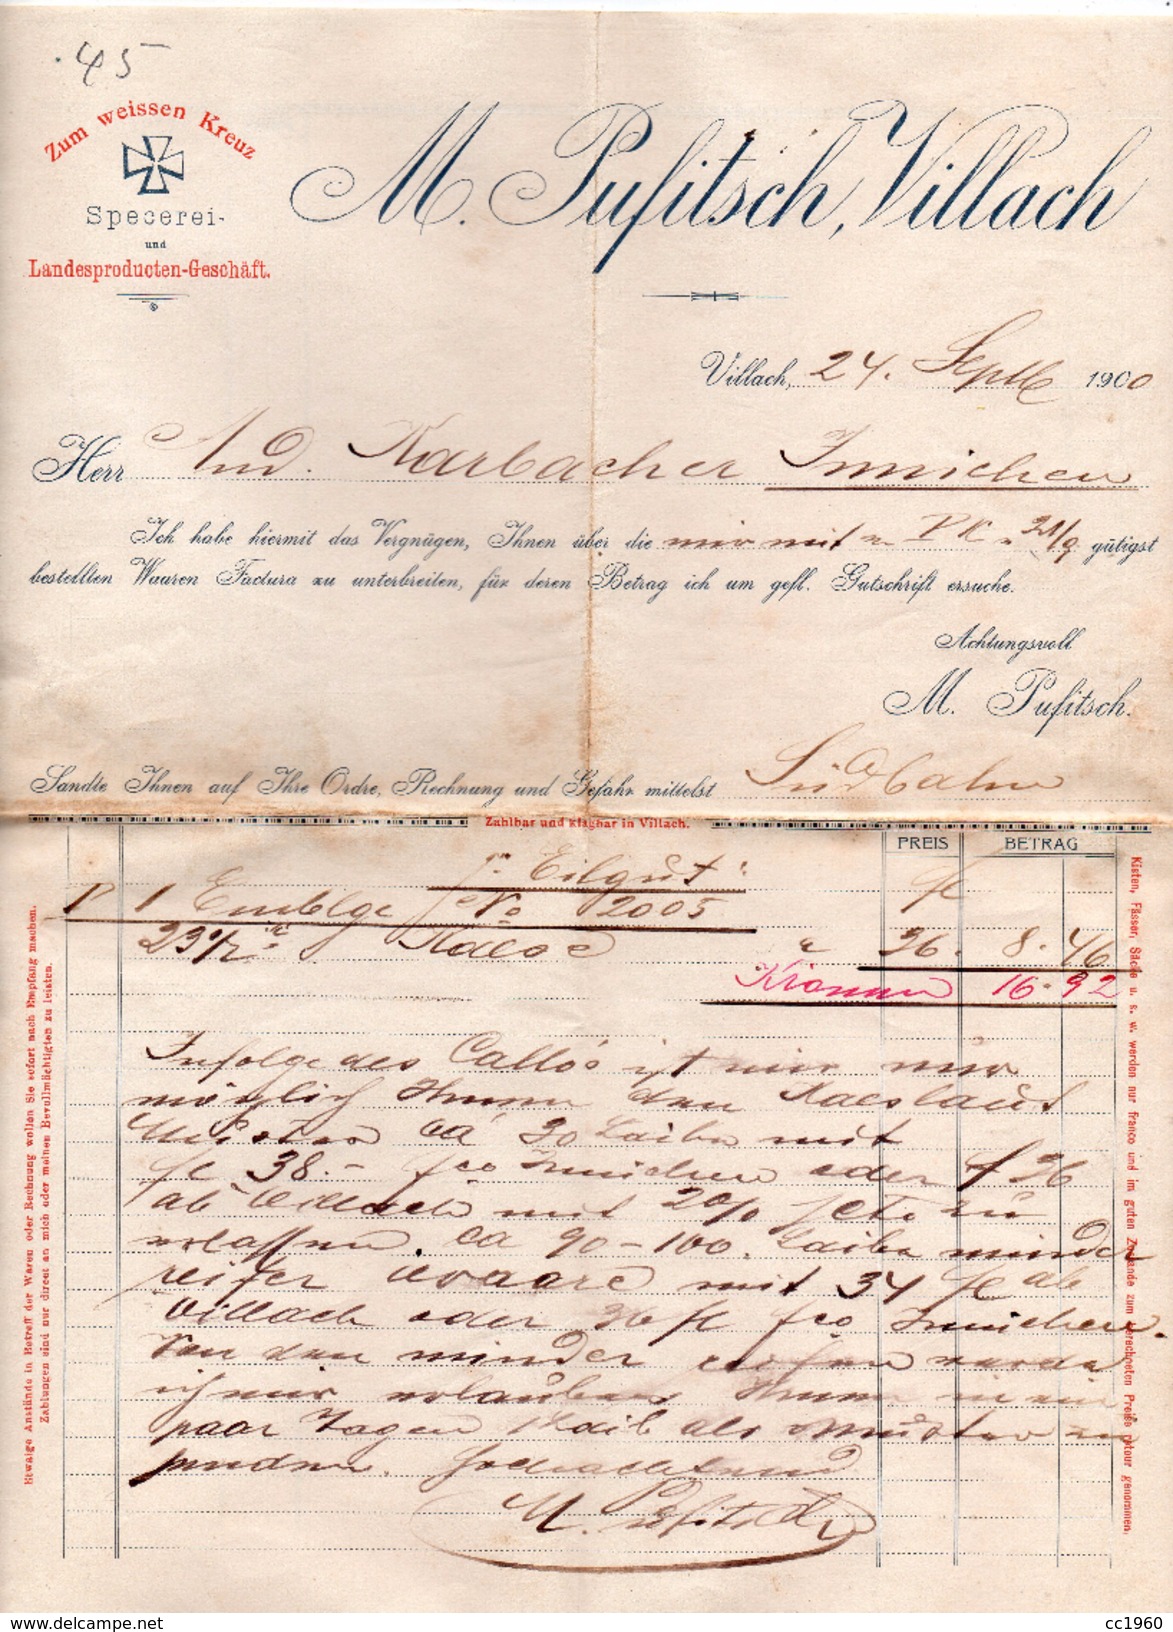 45
Zum weissen Kreuz
Specerei-
und
Landesproducten-Geschäft.
M. Pufitsch, Villach
Villach, 24. Sept 1900
Herr And. Karbacher Innichen
Ich habe hiermit das Vergnügen, Ihnen über die mir mit PK 21/9 gütigst
bestellten Waaren Factura zu unterbreiten, für deren Betrag ich um gefl. Gutschrift ersuche.
Achtungsvoll
M. Pufitsch.
Sandte Ihnen auf Ihre Ordre, Rechnung und Gefahr mittelst Südbahn
Zahlbar und klagbar in Villach.
PREIS BETRAG
Eilgut fl
P 1 No 2005
23 1/2 Kaese " 36. 8.46
Kronen 16.92
Infolge des ist mir nur
möglich Ihnen den Kaes laut
Muster ca 30 Laibe mit
fl 38.- fco Innichen oder f 36
ab Villach mit 2% zu
erlassen. ca 90-100 Laibe minder
reifer Waare mit 34 fl ab
Villach oder 36 fl fco Innichen.
Von den minder reifen werde
ich mir erlauben Ihnen in ein
paar Tagen 1 Laib als Muster zu
senden. Hochachtend
M. Pufitsch
Etwaige Anstände in Betreff der Waren oder Rechnung wollen Sie sofort nach Empfang machen.
Zahlungen sind nur direct an mich oder meinen Bevollmächtigten zu leisten.
Kisten, Fässer, Säcke u. s. w. werden nur franco und im guten Zustande zum berechneten Preise retour genommen.
www.delcampe.net
cc1960